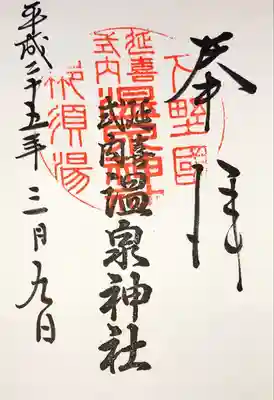 奉拝
下野國
延喜式内
温泉神社
那須湯
延喜式内 温泉神社
平成二十五年 三月九日